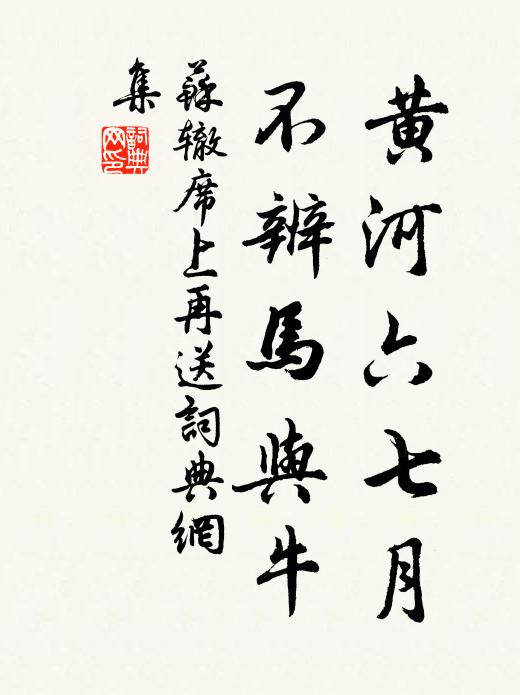 黄河六七月
不辨馬與牛
蘇轍席上再送詞典網
集
詞典
网印